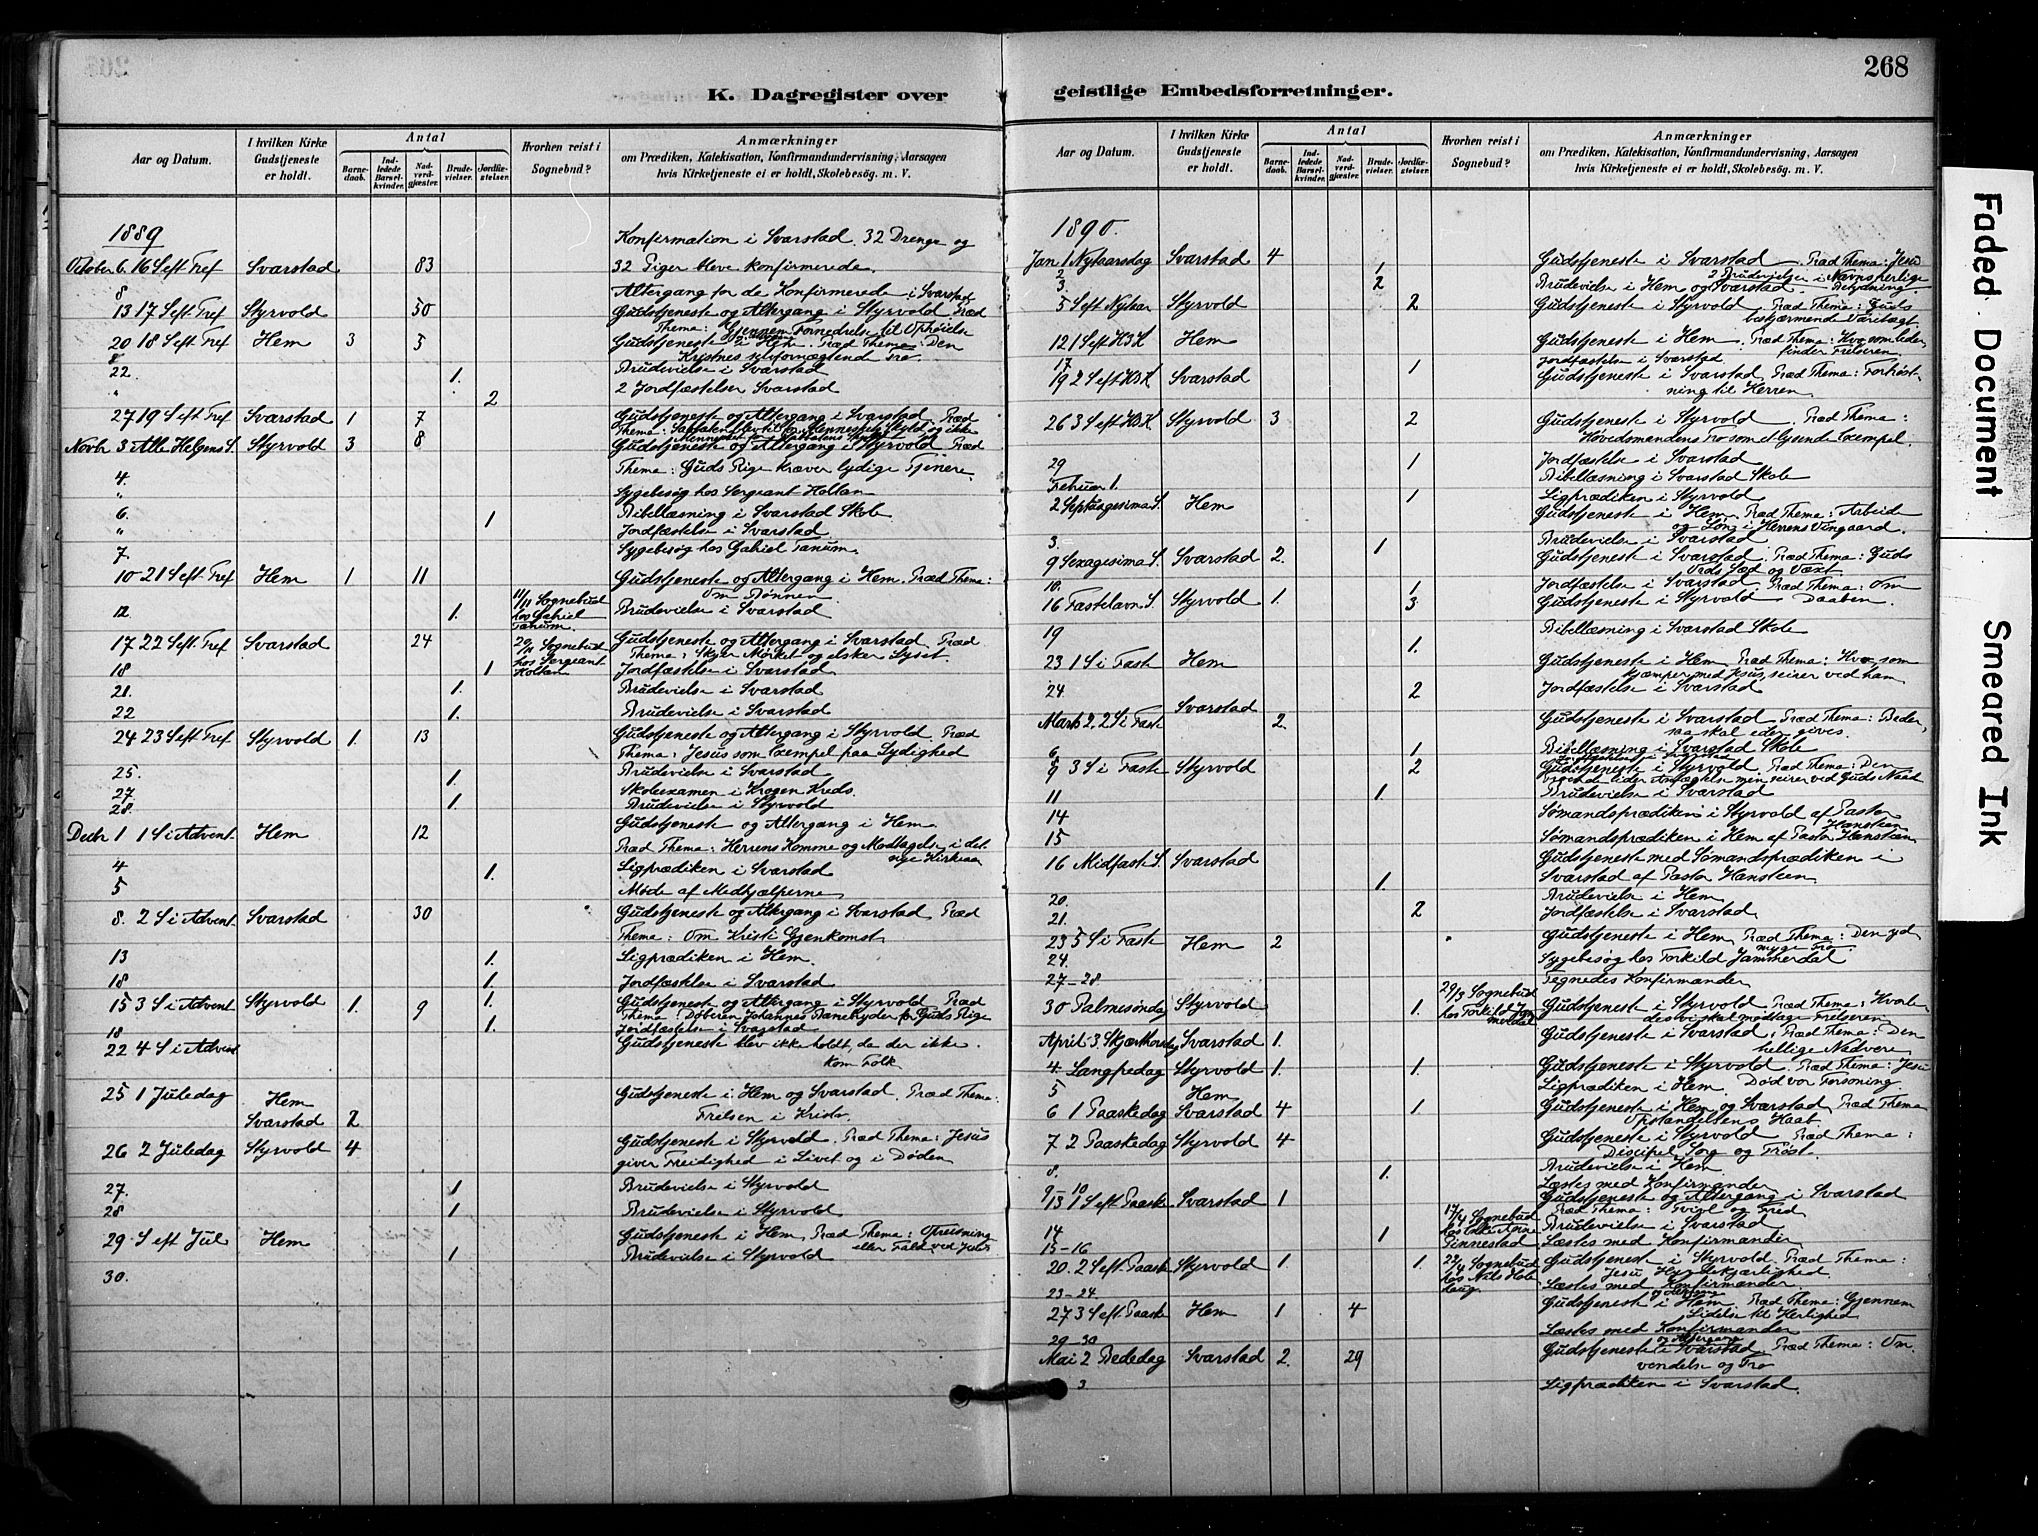 268
K. Dagregister over geistlige Embedsforretninger.
Aar og Datum. | I hvilken Kirke Gudstjeneste er holdt. | Antal | Barnedaab. | Indledede Barselkvinder. | Nadverdgjæster. | Brudevielser. | Jordfæstelser. | Hvorhen reist i Sognebud? | Anmærkninger om Prædiken, Katekisation, Konfirmandundervisning, Aarsagen hvis Kirketjeneste ei er holdt, Skolebesøg. m. V.
1889
Konfirmation i Svarstad. 32 Drenge og
October 6. 16 S eft Tref | Svarstad | 83 | 32 Piger bleve konfirmerede.
8 | Altergang for de Konfirmerede i Svarstad
13 17 S eft Tref | Styrvold | 50 | Gudstjeneste og Altergang i Styrvold Præd
Thema: Gjennem Fornedrelse til Ophøielse
20 18 S eft Tref | Hem | 3 | 5 | Gudstjeneste og Altergang i Hem. Præd Thema: Den
Kristnes selvfornægtend Tro.
22. | 1. | Brudevielse i Svarstad
" | 2 | 2 Jordfæstelser Svarstad
27 19 S eft Tref | Svarstad | 1 | 7 | Gudstjeneste og Altergang i Svarstad. Præd
Thema: Sabbaten blev til for Menneskets Skyld og ikke
Mennesket for Sabbatens Skyld
Novbr 3 Alle Helgens S. | Styrvold | 3 | 8 | Gudstjeneste og Altergang i Styrvold Præd
Thema: Guds Rige kræver lydige Tjenere.
4. | Sygebesøg hos Sergeant Holtan
6. | Bibellæsning i Svarstad Skole
" | 1 | Jordfæstelse i Svarstad
7. | Sygebesøg hos Gabriel Tanum.
10 21 S eft Tref | Hem | 1 | 11 | Gudstjeneste og Altergang i Hem. Præd Thema:
Om Bønnen
12. | 1. | 11/11 Sognebud hos Gabriel Tanum. | Brudevielse i Svarstad
17 22 S eft. Tref | Svarstad | 24 | 20/11 Sognebud hos Sergeant Holtan | Gudstjeneste og Altergang i Svarstad Præd
Thema: Skyer Mørket og elsker Lyset.
18 | 1 | Jordfæstelse i Svarstad
21. | 1. | Brudevielse i Svarstad
22 | 1. | Brudevielse i Svarstad
24 23 S eft Tref | Styrvold | 1. | 13 | Gudstjeneste og Altergang i Styrvold. Præd
Thema: Jesus som Exempel paa Lydighed
25. | 1. | Brudevielse i Svarstad
27. | 1. | Skoleexamen i Krogen Kreds.
28. | 1. | Brudevielse i Styrvold
Decbr 1 1 S i Advent | Hem | 12 | Gudstjeneste og Altergang i Hem
Præd Thema: Herrens Komme og Modtagelse i det
nye Kirkeaar
4 | 1. | Ligprædiken i Svarstad
5 | Møde af Medhjælperne
8. 2 S i Advent | Svarstad | 30 | Gudstjeneste og Altergang i Svarstad Præd
Thema: Om Kristi Gjenkomst
13 | 1. | Ligprædiken i Hem.
18 | 1 | Jordfæstelse i Svarstad
15 3 S i Advent | Styrvold | 1. | 9 | 1. | Gudstjeneste og Altergang i Styrvold Præd
Thema: Døberen Johannes Banebryder for Guds Rige
18 | 1. | Jordfæstelse i Svarstad
22 4 S i Advent | Gudstjeneste blev ikke holdt, da der ikke
kom Folk
25 1 Juledag | Hem | Gudstjeneste i Hem og Svarstad. Præd Thema:
Svarstad | 2 | Frelsen i Kristo.
26 2 Juledag | Styrvold | 4 | Gudstjeneste i Styrvold. Præd Thema: Jesus
giver Freidighed i Livet og i Døden
27. | 1 | Brudevielse i Styrvold
28 | 1 | Brudevielse i Styrvold.
29 S eft Jul | Hem | Gudstjeneste i Hem Præd Thema: Opreisning
eller Fald ved Jesus
30. | 1 | Brudevielse i Styrvold
Aar og Datum. | I hvilken Kirke Gudstjeneste er holdt. | Antal | Barnedaab. | Indledede Barselkvinder. | Nadverdgjæster. | Brudevielser. | Jordfæstelser. | Hvorhen reist i Sognebud? | Anmærkninger om Prædiken, Katekisation, Konfirmandundervisning, Aarsagen hvis Kirketjeneste ei er holdt, Skolebesøg. m. V.
1890.
Jan 1 Nytaarsdag | Svarstad | 4 | Gudstjeneste i Svarstad. Præd Thema: Jesu
Navns herlige Betydning.
2 | 1
3. | 2 | Brudevielse i Hem og 2 Brudevielser i Svarstad.
5 S eft Nytaar | Styrvold | 2 | Gudstjeneste i Styrvold Præd Thema: Guds
beskjærmende Varetægt.
12 1 S eft H3K | Hem | Gudstjeneste i Hem. Præd Thema: Hvo som leder,
finder Frelseren.
17 | 1 | Jordfæstelse i Svarstad
19 2 S eft H3K | Svarstad | Gudstjeneste i Svarstad Præd Thema: Fortrøst-
ning til Herren.
26 3 S eft H3K | Styrvold | 3 | 2 | Gudstjeneste i Styrvold. Præd Thema:
Høvedsmandens Tro som et lysende Exempel.
29 | 1 | Jordfæstelse i Svarstad
Bibellæsning i Svarstad Skole
Februar 1. | 1 | Ligprædiken i Styrvold
2 Septuagesima S. | Hem | Gudstjeneste i Hem Præd Thema: Arbeid
og Løn i Herrens Vingaard.
3. | 1 | Brudevielse i Svarstad
9 Sexagesima S. | Svarstad | 2. | Gudstjeneste i Svarstad Præd Thema: Guds
Ords Sæd og Væxt
10. | 1 | Jordfæstelse i Svarstad
16 Fastelavn S. | Styrvold | 1. | 3 | Gudstjeneste i Styrvold Præd Thema: Om
Daaben.
19 | 1. | Bibellæsning i Svarstad Skole
23 1 S i Fast | Hem | Gudstjeneste i Hem Præd Thema: Hvo, som
kjæmper med Jesus, seirer ved ham.
24. | 2 | Jordfæstelse i Svarstad
Marts 2. 2 S i Fast | Svarstad | 2. | Gudstjeneste i Svarstad Præd Thema: Beder,
saa skal eder gives.
6 | 1 | Bibellæsning i Svarstad Skole
9 3 S i Fast | Styrvold | 2 | Gudstjeneste i Styrvold Præd Thema: Den
troende lider Anfægtelse men seirer ved Guds Naad
11 | 1. | Brudevielse i Svarstad
14 | Sømandsprædiken i Styrvold af Pastor
Hansteen
15 | Sømandsprædiken i Hem af Pastor Hansteen
16 Midfaste S. | Svarstad | Gudstjeneste med Sømandsprædiken i
Svarstad af Pastor Hansteen.
20. | 1. | Brudevielse i Hem
21. | 2 | Jordfæstelse i Svarstad
23 5 S i Fast | Hem | 2 | Gudstjeneste i Hem Præd Thema: Den yd
myge Tro
24. | Sygebesøg hos Torkild Jammerdal
27-28 | Tegnedes Konfirmander
30 Palmesøndag | Styrvold | 1. | 29/3 Sognebud hos Torkild Jammerdal | Gudstjeneste i Styrvold Præd Thema: Hvorle
des vi skal modtage Frelseren.
April 3 Skjærthorsdag | Svarstad | 1. | Gudstjeneste i Svarstad. Præd Thema: Den
hellige Nadvere
4. Langfredag | Styrvold | 1. | 1. | Gudstjeneste i Styrvold. Præd Thema: Jesu
Død vor Forsoning.
5 | Hem | Ligprædiken i Hem
6 1 Paaskedag | Svarstad | 4 | 1 | Gudstjeneste i Hem og Svarstad, Præd Thema
Opstandelsens Haab.
7 2 Paaskedag | Styrvold | 4 | Gudstjeneste i Styrvold Præd Thema:
Disciplenes Sorg og Trøst.
8. | 1. | Brudevielse i Hem
9-10 | Læstes med Konfirmander
13 1 S eft Paaske | Svarstad | 1 | Gudstjeneste og Altergang i Svarstad
Præd Thema: Tvivl og Fred
14 | 1 | 17/4 Sognebud hos | Brudevielse i Svarstad
15-16 | Læstes med Konfirmander
20. 2 S eft Paaske | Styrvold | 1. | 1. | 22/4 Sognebud hos Nils | Gudstjeneste i Styrvold Præd Thema:
Jesu Hyrdekjærlighed
23-24. | Læstes med Konfirmander
27 3 S eft Paaske | Hem | 1 | 4 | Gudstjeneste og Altergang i Hem Præd Thema: Gjennem
Lidelse til Herlighed
29-30 | Læstes med Konfirmander
Mai 2 Bededag | Svarstad | 2. | 29 | Gudstjeneste og Altergang i Svarstad. Præd Thema: Om
vendelse og Tro
3 | Ligprædiken i Svarstad.
Faded Document
Smeared Ink